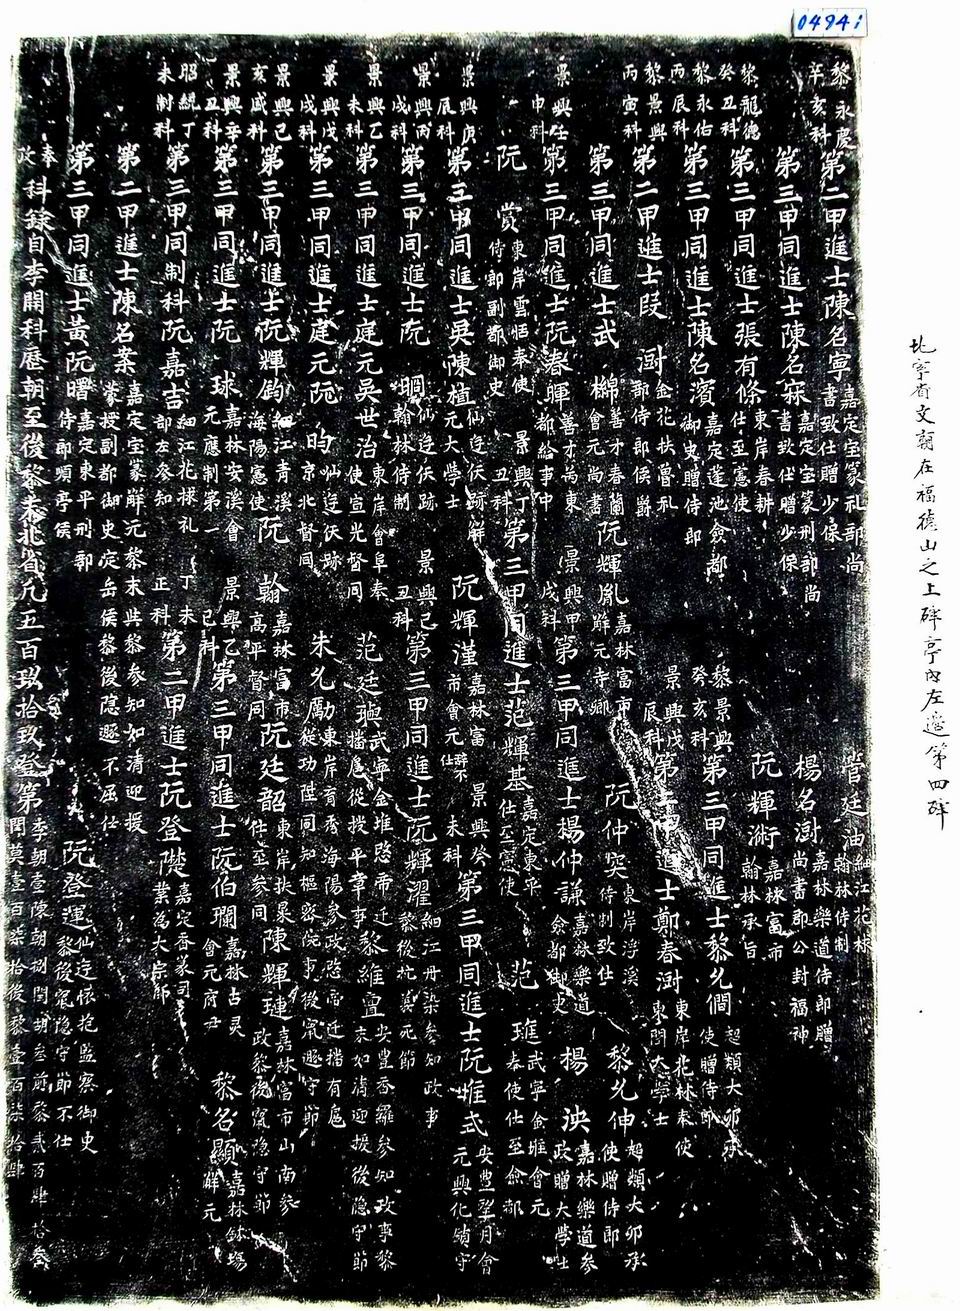 04941
北寧省文廟在福德山之上碑亭内左邉第四碑
黎永慶辛亥科第二甲進士陳名寧嘉定宝篆礼部尚書致仕贈少保 管廷油細江花林翰林侍制
第三甲同進士陳名寀嘉定宝篆刑部尚書致仕贈少保 楊名澍嘉林樂道侍郎贈尚書郡公封福神
黎龍德癸丑科第三甲同進士張有條東岸春耕仕至憲使 阮輝術嘉林富市翰林承旨
黎永佑丙辰科第三甲同進士陳名濱嘉定蓬池僉都御史贈侍郎 黎景興癸亥科第三甲同進士黎允僩超類大卯承使贈侍郎
黎景興丙寅科第二甲進士段澍金花扶魯礼部侍郎侯爵 景興戊辰科第三甲同進士鄭春澍東岸花林奉使東閣大學士
第三甲同進士武檰善才春蘭會元尚書 阮輝胤嘉林富市解元寺卿 阮仲突東岸浮溪侍制致仕 黎允伸超類大卯承使贈侍郎
景興壬申科第三甲同進士阮春暉善才為東都給事中 景興甲戌科第三甲同進士楊仲謙嘉林樂道僉都御史 楊泱嘉林樂道參政贈大學士
阮賞東岸雲恬奉使侍郎副都御史 景興丁丑科第三甲同進士范輝基嘉定東平仕至憲使 范璡武寧金堆會元奉使仕至僉都
景興庚辰科第三甲同進士吳陳植仙逰伖跡解元大學士 阮輝漌嘉林富市會元仕 景興癸未科第三甲同進士阮堆式安豊翠月會元興化鎮守
景興丙戌科第三甲同進士阮㫼仙逰伖跡翰林侍制 景興己丑科第三甲同進士阮輝濯細江丹染參知政事黎後扢義完節
景興乙未科第三甲同進士吳世治東岸會阜奉使宣光督同 范廷璵武寧金堆愍帝迁播扈從授平章事 黎維亶安豊香羅參知政事黎末如清迎援後隐守節
景興戊戌科第三甲同進士阮昀仙逰伖跡京北督同 朱允勵東岸育秀海陽參政愍帝迁播有扈從功陞同知樞密院事後竄遯守節
景興己亥盛科第三甲同進士阮輝鈞細江青溪海陽憲使 阮翰嘉林富市高平督同 阮廷韶東岸扶果仕至參同 陳輝璉嘉林富市山南參政黎後竄隐守節
景興辛丑科第三甲同進士阮球嘉林安溪會元應制第一 景興乙己科第三甲同進士阮伯瓓嘉林古灵會元府尹 黎名顯嘉林鉢塲解元
昭統丁未制科第三甲同制科阮嘉吉細江花梂礼部左參知 丁未正科第二甲進士阮登㰚嘉定香篆司業為大宗師
第二甲進士陳名案嘉定宝篆解元黎末共黎參知如清迎援蒙授副都御史定岳侯黎後隐遯不屈仕
第三甲同進士黃阮曙嘉定東平刑部侍郎順亭侯 阮登運仙逰懷抱監察御史黎後竄隐守節不仕
奉㳂科錄自李開科歷朝至後黎末北省凢五百玖拾玖登第李朝壹陳朝捌閏胡叁前黎貳百肆拾叁閏莫壹百柒拾後黎壹百柒拾肆